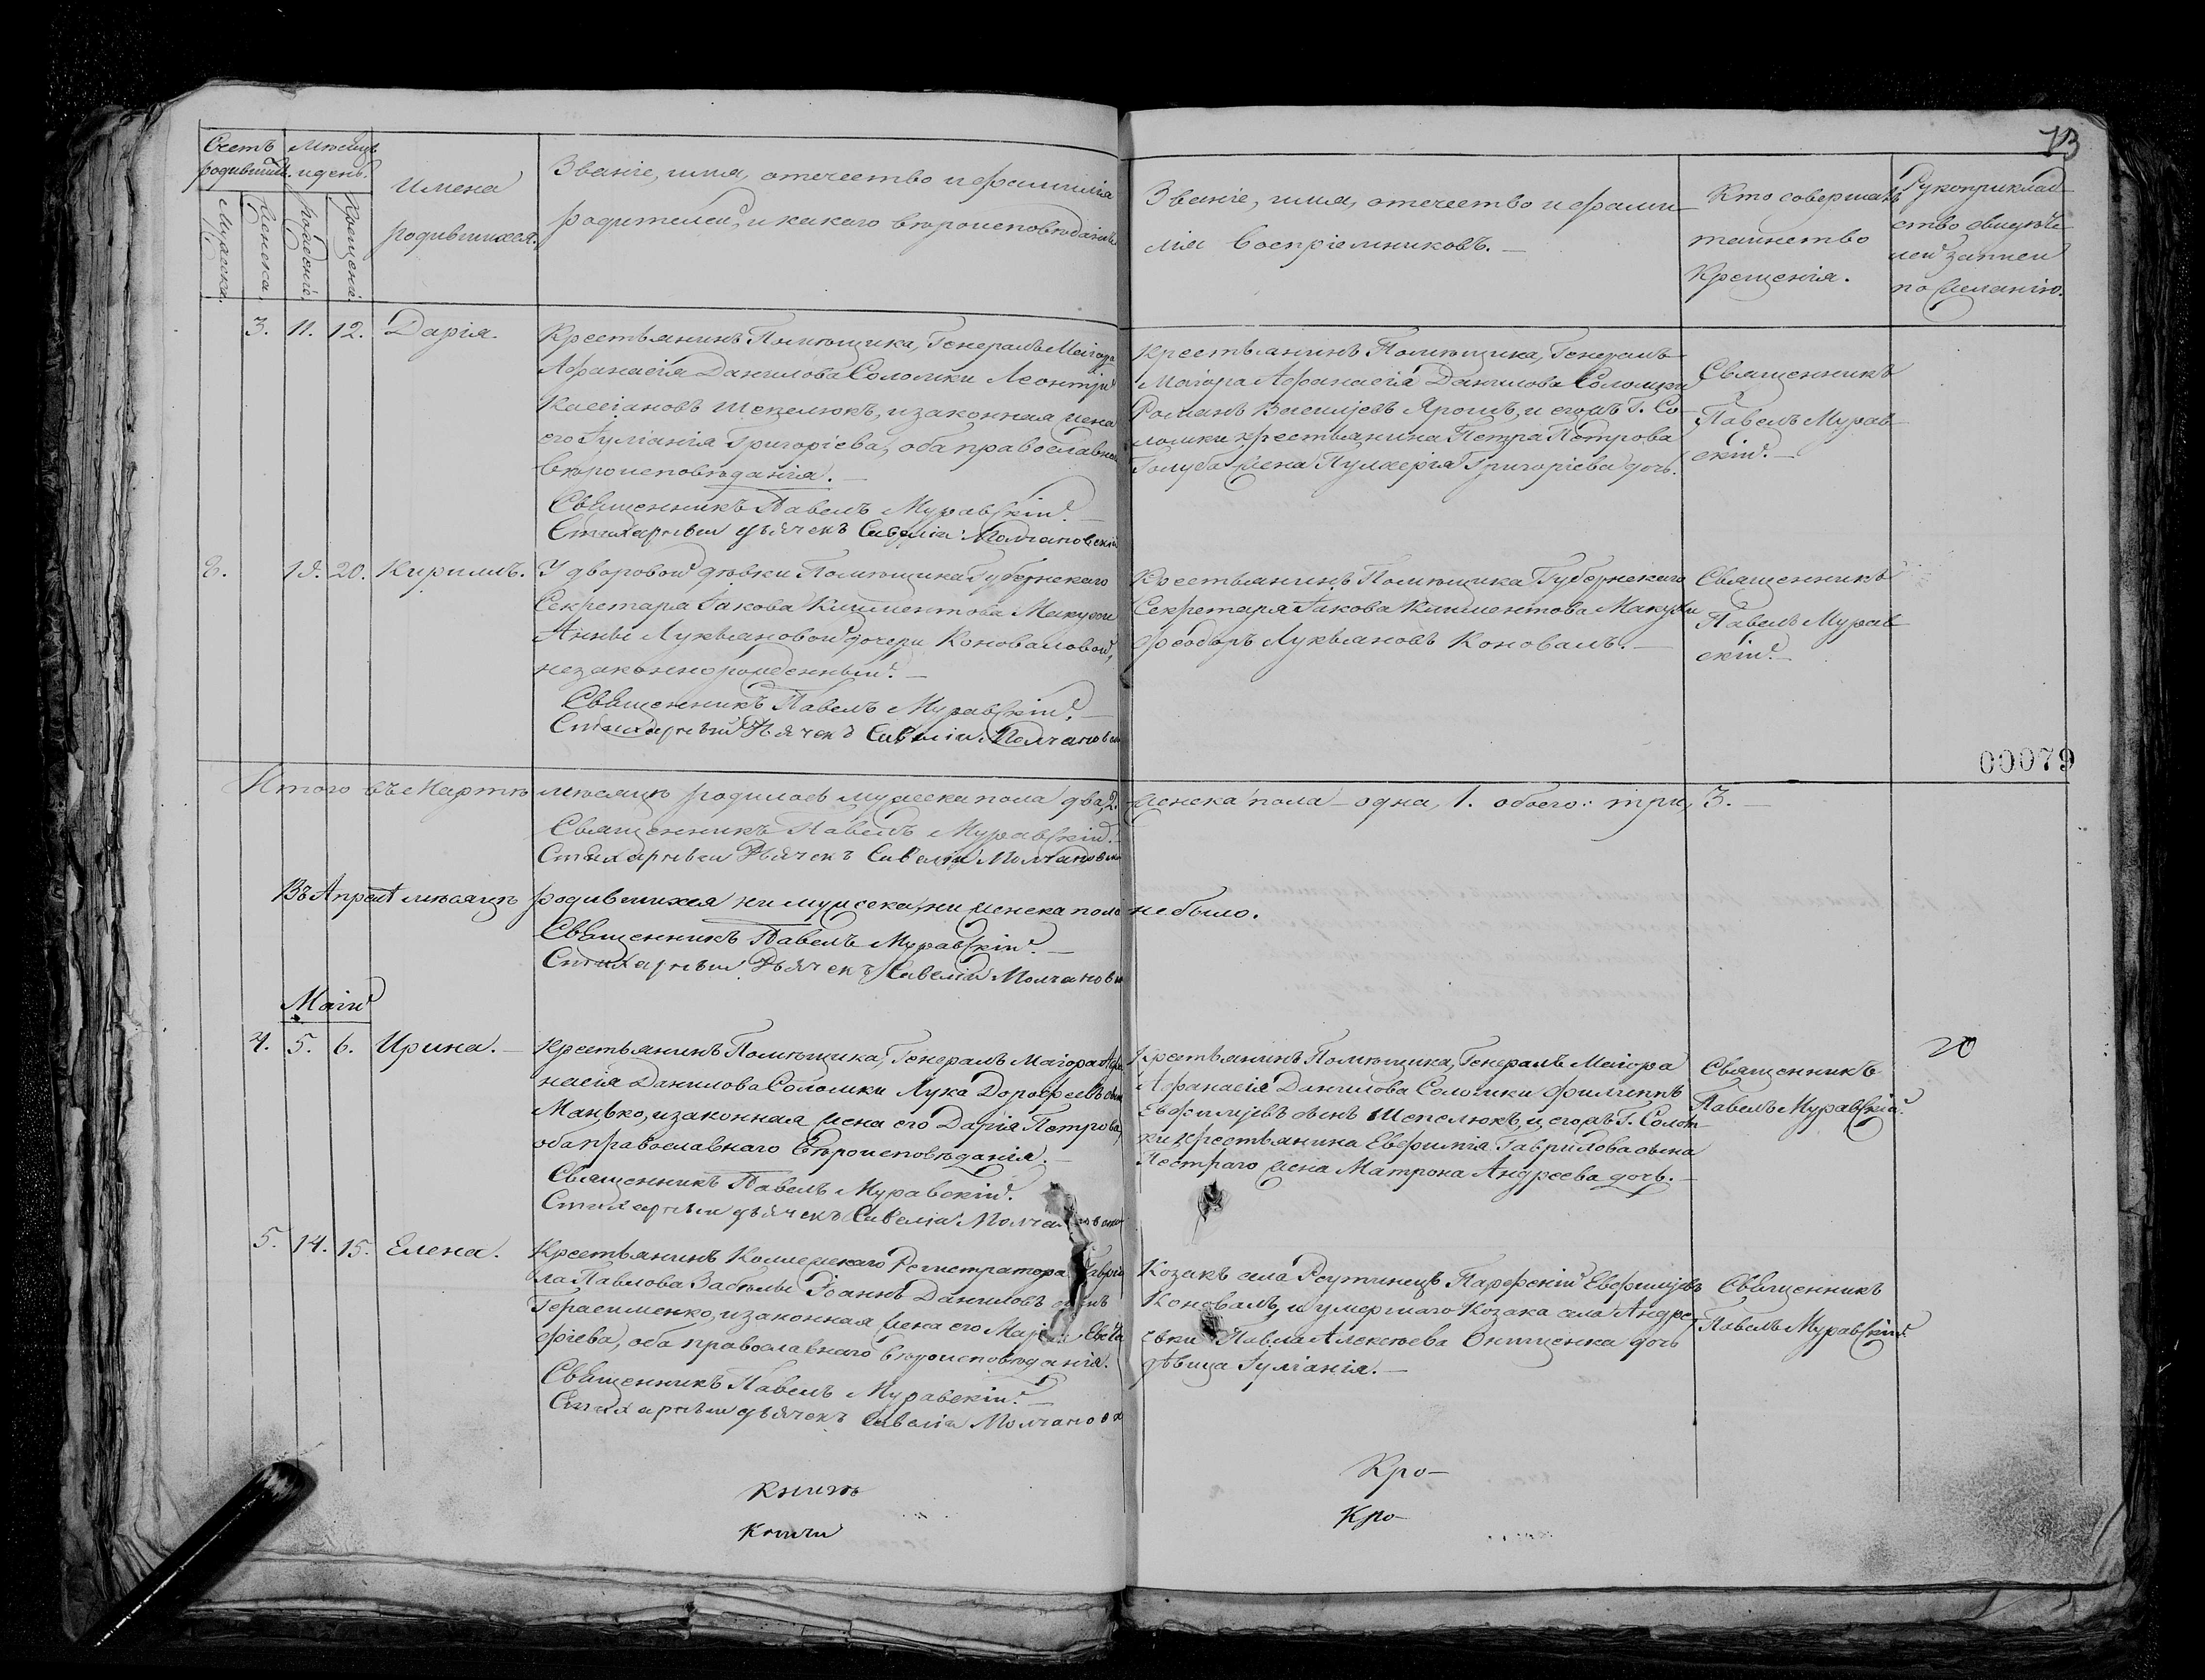 73
Счетъ родившихся.
Мѣсяцъ и день.
Мужеска.
Женска.
рожденія.
Крещенія.
Имена
родившихся.
Званіе, имя, отечество и фамилія
родителей, и какаго вѣроисповѣданія.
Званіе, имя, отечество и фами-
лія Воспріемниковъ. —
Кто совершалъ
таинство
Крещенія.
Рукоприклад-
ство свидѣте-
лей записи
по желанію.
3. 11. 12. Дарія.
Крестьянинъ Помѣщика, Генералъ Маіора
Афанасія Данилова Соломки Леонтій
Кассіановъ Шепелюкъ, и законная жена
его Іуліанія Григоріева, оба православнаго
вѣроисповѣданія. —
Священникъ Павелъ Муравскій. —
Стихарный дьячекъ Савелій Молчановскій
Крестьянинъ Помѣщика, Генералъ
Маіора Афанасія Данилова Соломки
Романъ Васильевъ Ярошъ, и его жъ Г. Со-
ломки крестьянина Петра Петрова
Голуба жена Пулхерія Григоріева дочь.
Священникъ
Павелъ Мурав-
скій. —
2. 19. 20. Кириллъ.
У дворовой дѣвки Помѣщика Губернскаго
Секретаря Іакова Климентова Макухи
Анны Лукьяновой дочери Коноваловой,
незаконнорожденный. —
Священникъ Павелъ Муравскій. —
Стихарный Дьячекъ Савелій Молчановскій
Крестьянинъ Помѣщика Губернскаго
Секретаря Іакова Климентова Макухи
Феодоръ Лукьяновъ Коновалъ. —
Священникъ
Павелъ Мурав-
скій. —
00079
Итого въ Мартѣ мѣсяцѣ родилось мужеска пола два, 2. женска пола — одна, 1. обоего: три, 3. —
Священникъ Павелъ Муравскій.
Стихарный Дьячекъ Савелій Молчановскій
Въ Апрѣлѣ мѣсяцѣ родившихся ни мужеска, ни женска пола не было.
Священникъ Павелъ Муравскій. —
Стихарный Дьячекъ Савелій Молчановскій
Маій
4. 5. 6. Ирина. —
Крестьянинъ Помѣщика, Генералъ Маіора Афа-
насія Данилова Соломки Лука Дорофеевъ сынъ
Манько, и законная жена его Дарія Петрова,
оба православнаго Вѣроисповѣданія. —
Священникъ Павелъ Муравскій.
Стихарный дьячекъ Савелій Молчановскій
Крестьянинъ Помѣщика, Генералъ Маіора
Афанасія Данилова Соломки Филиппъ
Евфиміевъ сынъ Шепелюкъ, и его жъ Г. Солом-
ки крестьянина Евфимія Гаврилова сына
Пестраго жена Матрона Андреева дочь. —
Священникъ
Павелъ Муравскій.
20
5. 14. 15. Елена.
Крестьянинъ Коллежскаго Регистратора Гаврии-
ла Павлова Іоаннъ Даниловъ сынъ
Герасименко, и законная жена его Марія
фіева, оба православнаго вѣроисповѣданія.
Священникъ Павелъ Муравскій. —
Стихарный дьячекъ Савелій Молчановск
Козакъ села Реутинецъ Парфеній Евфиміевъ
Коновалъ, и умершаго Козака села Андре-
евки Павла Алексѣева Онищенка дочь
дѣвица Іуліанія. —
Священникъ
Павелъ Муравскій.
Книгѣ
Книги
Кро-
Кро-